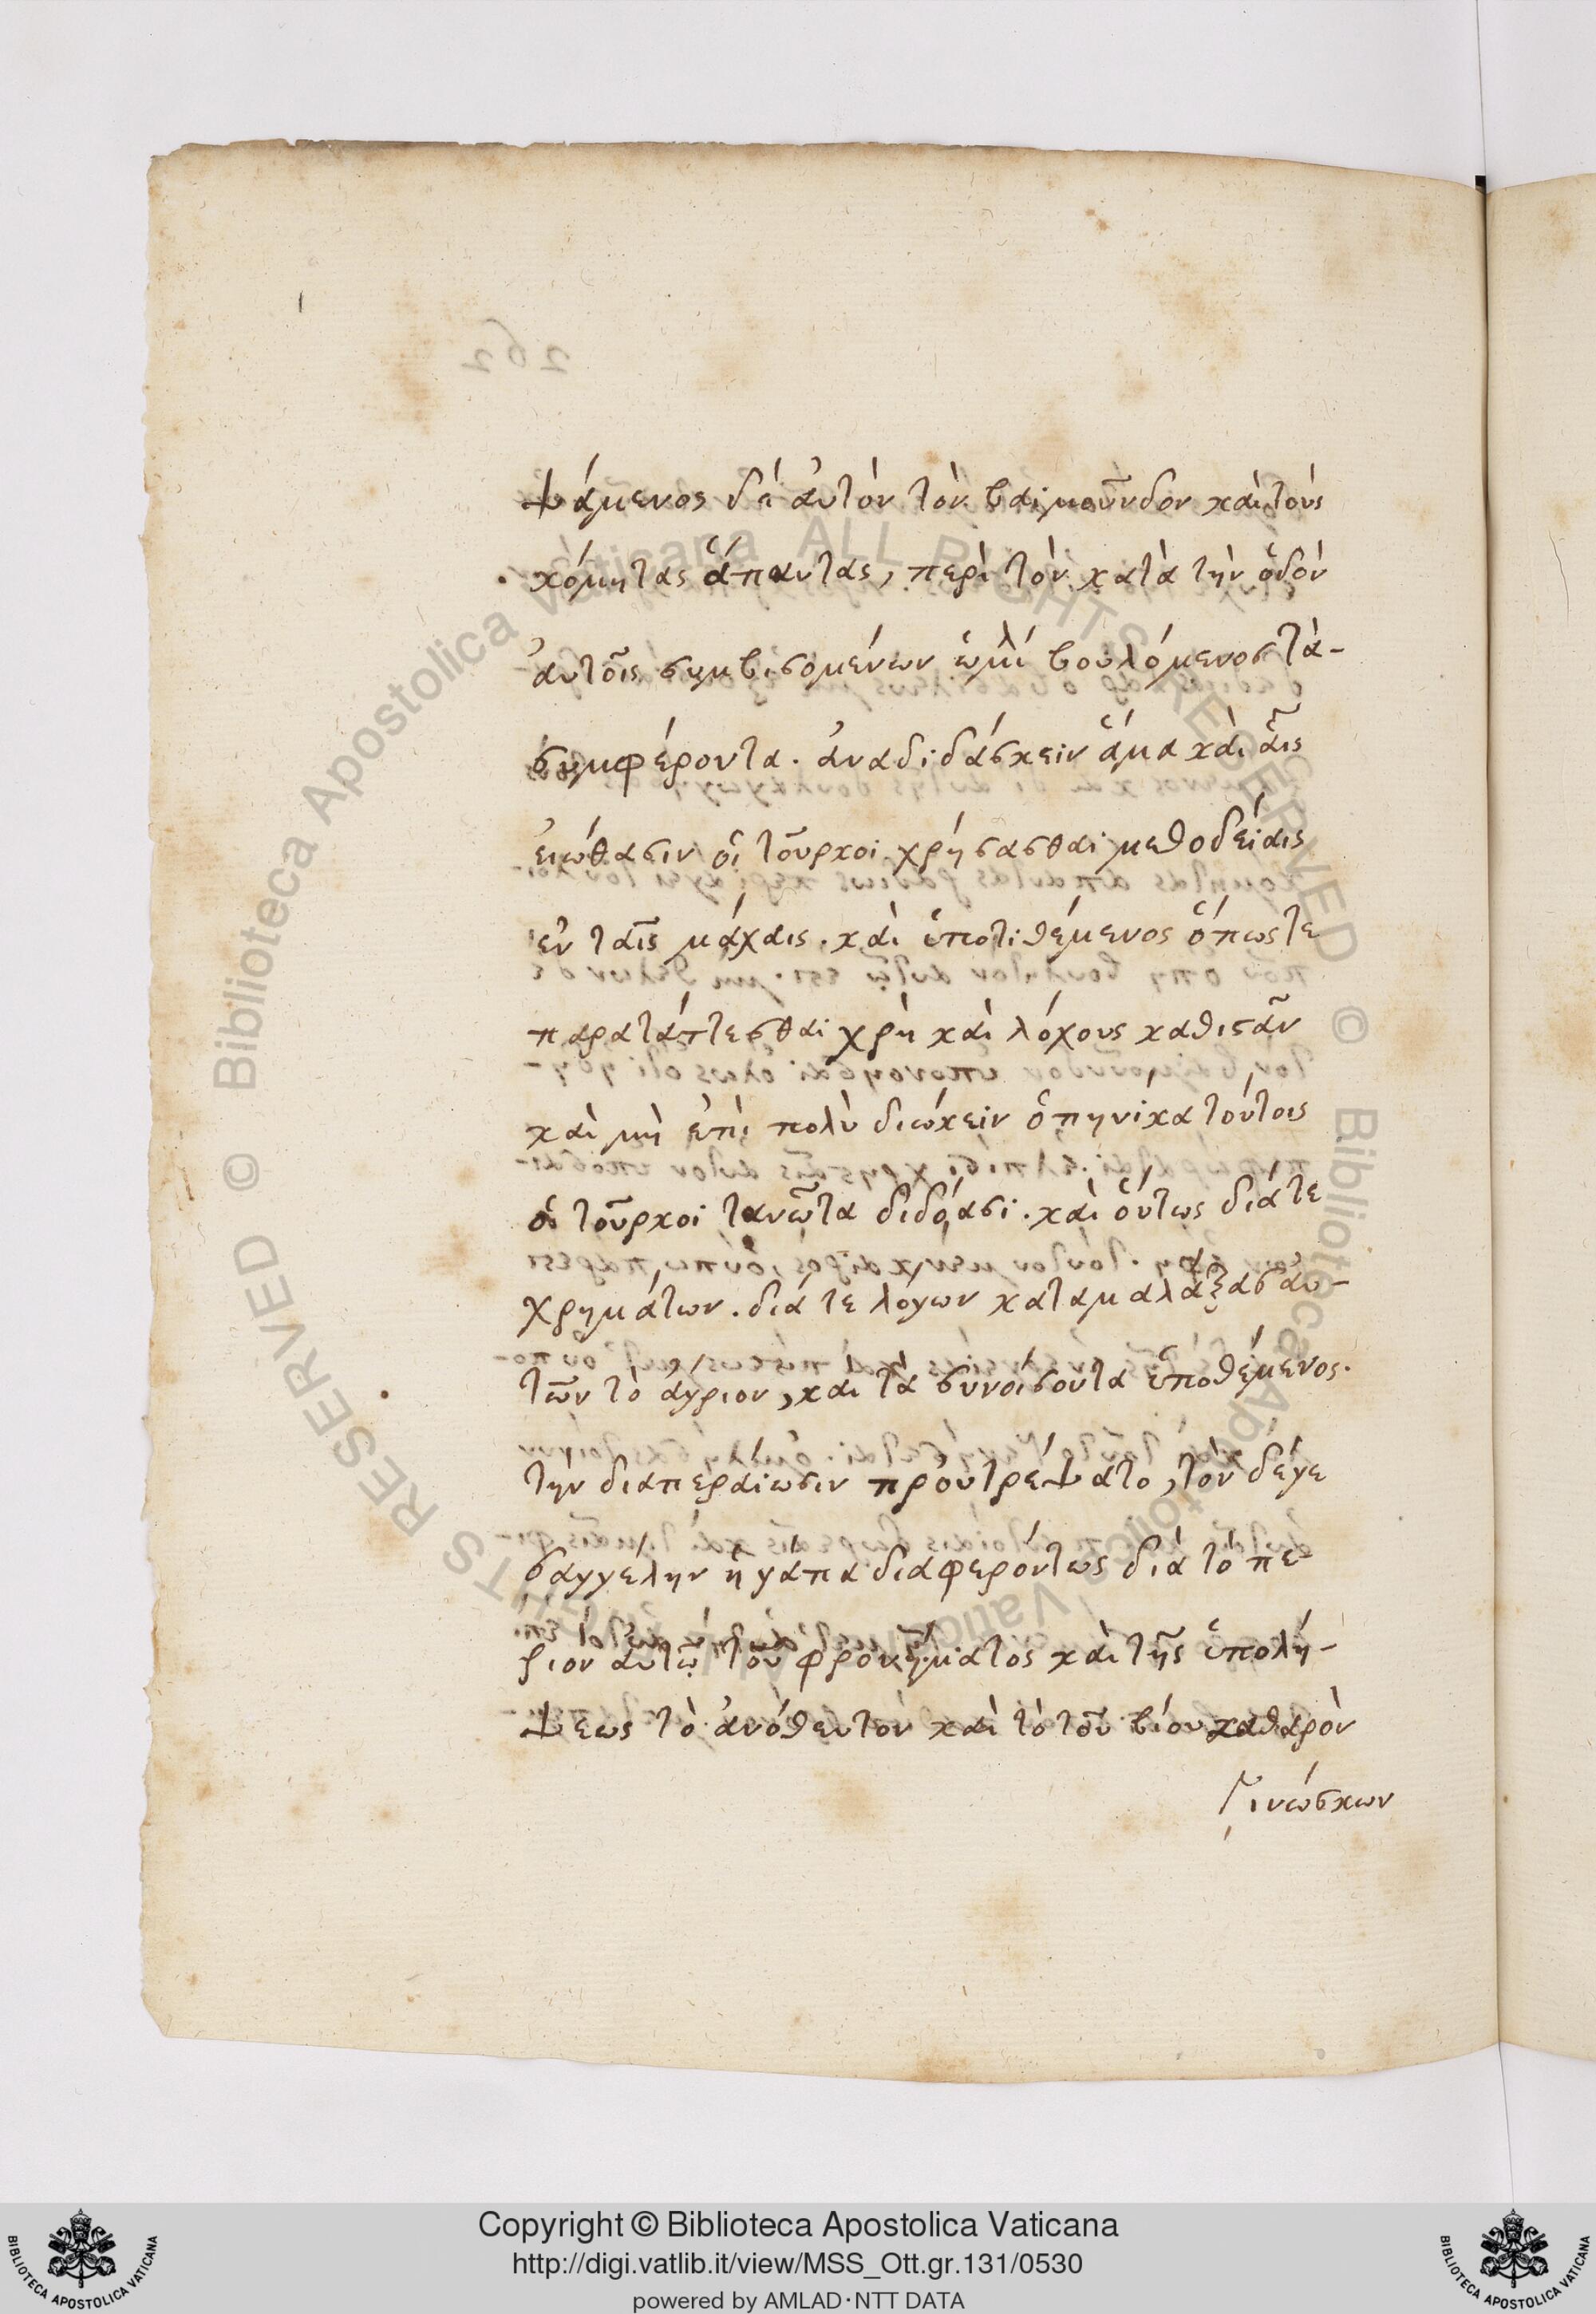 ψάμενος δὲ ἀυτὸν τὸν βαϊμοῦνδον κὰι τοὺς
κόμητας ἅπαντας, περὶ τὸν κατὰ τὴν ὁδὸν
ἀυτοῖς συμβησομένων ὡμίλει βουλόμενος τὰ-
συμφέροντα. ἀναδιδάσκειν ἅμα κὰι ἅις
ἐιώθασιν οἱ τοῦρκοι χρήσασθαι μεθοδείαις
ἐν τᾶις μάχαις. κὰι ὑποτιθέμενος ὅπως τε
παρατάττεσθαι χρὴ κὰι λόχους καθιστᾶν
κὰι μὴ ἐπὶ πολὺ διώκειν ὁπηνίκα τούτοις
οἱ τοῦρκοι τὰ νῶτα διδόασι. κὰι ὅυτως διά τε
χρημάτων. διά τε λόγων καταμαλάξας ἀυ-
τῶν τὸ ἄγριον, κὰι τὰ συνοίσοντα ὑποθέμενος.
τὴν διαπεραίωσιν πρὀυτρέψατο, τὸν δέγε
σαγγέλην ἠγάπα διαφερόντως διὰ τὸ πε-
ριὸν ἀυτῷ τοῦ φρονήματος κὰι τῆς ὑπολή-
ψεως τὸ ἀνόθευτον κὰι τὸ τοῦ βίου καθαρὸν
γινώσκων
262
Copyright © Biblioteca Apostolica Vaticana
http://digi.vatlib.it/view/MSS_Ott.gr.131/0530
powered by AMLAD·NTT DATA
BIBLIOTECA APOSTOLICA VATICANA
BIBLIOTECA APOSTOLICA VATICANA